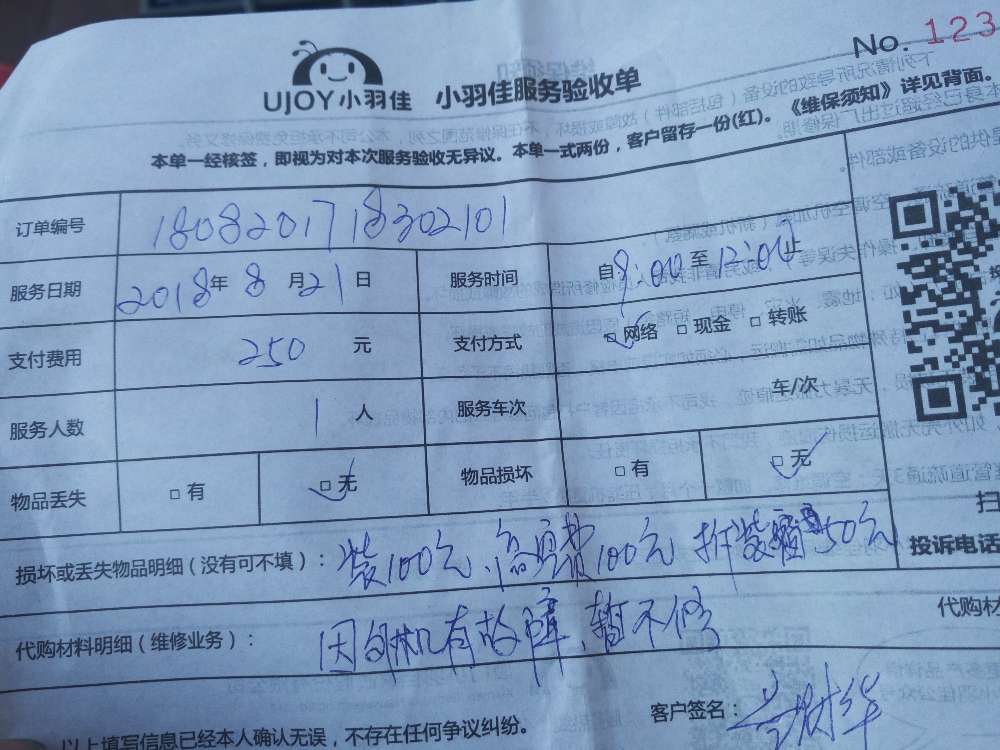 No. 123
UJOY小羽佳 小羽佳服务验收单
本单一经核签，即视为对本次服务验收无异议。本单一式两份，客户留存一份(红)。《维保须知》详见背面。
订单编号 1808201718302101
服务日期 2018年 8 月 21 日 服务时间 自 8:00 至 12:00 止
支付费用 250 元 支付方式 □ 网络 □ 现金 □ 转账
服务人数 1 人 服务车次 车/次
物品丢失 □ 有 □ 无 物品损坏 □ 有 □ 无
扫
损坏或丢失物品明细（没有可不填）： 装100元、高空费100元 拆装 50元
投诉电话
代购材料明细（维修业务）： 因外机有故障，暂不修
代购材
客户签名：
以上填写信息已经本人确认无误，不存在任何争议纠纷。